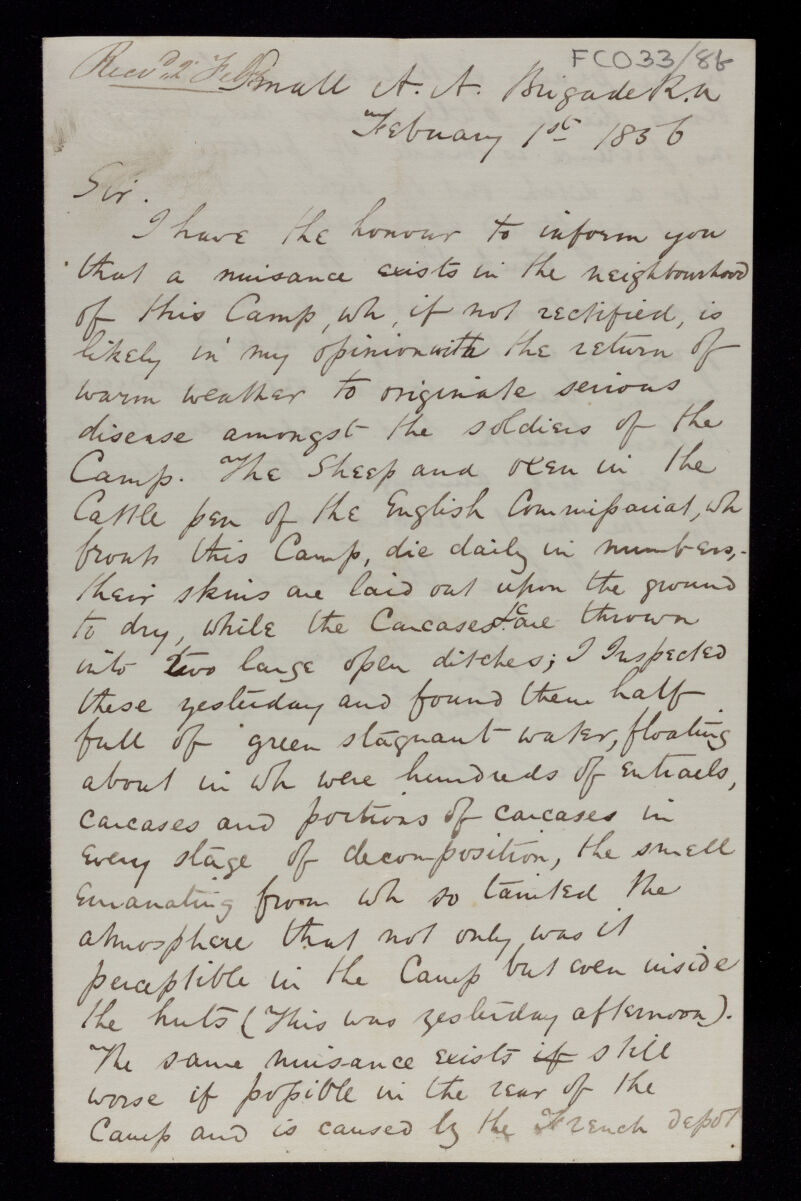 Recd 2 Feb
FCO33/86
Small A. A. Brigade R.A
Febuary 1st 1856
Sir.
I have the honour to inform you
that a nuisance exists in the neighbourhood
of this Camp, wh, if not rectified, is
likely in my opinion with the return of
warm weather to originate serious
disease amongst the soldiers of the
Camp. The Sheep and oxen in the
Cattle pen of the English Commissariat, wh
fronts this Camp, die daily in numbers,-
their skins are laid out upon the ground
to dry, while the Carcases &c are thrown
into two large open ditches; I Inspected
these yesterday and found them half
full of green stagnant water, floating
about in wh were hundreds of entraels,
carcases and portions of carcases in
every stage of decomposition, the smell
emanating from wh so tainted the
atmosphere that not only was it
perceptible in the Camp but even inside
the huts (This was yesterday afternoon).
The same nuisance exists if still
worse if possible in the rear of the
Camp and is caused by the French depot